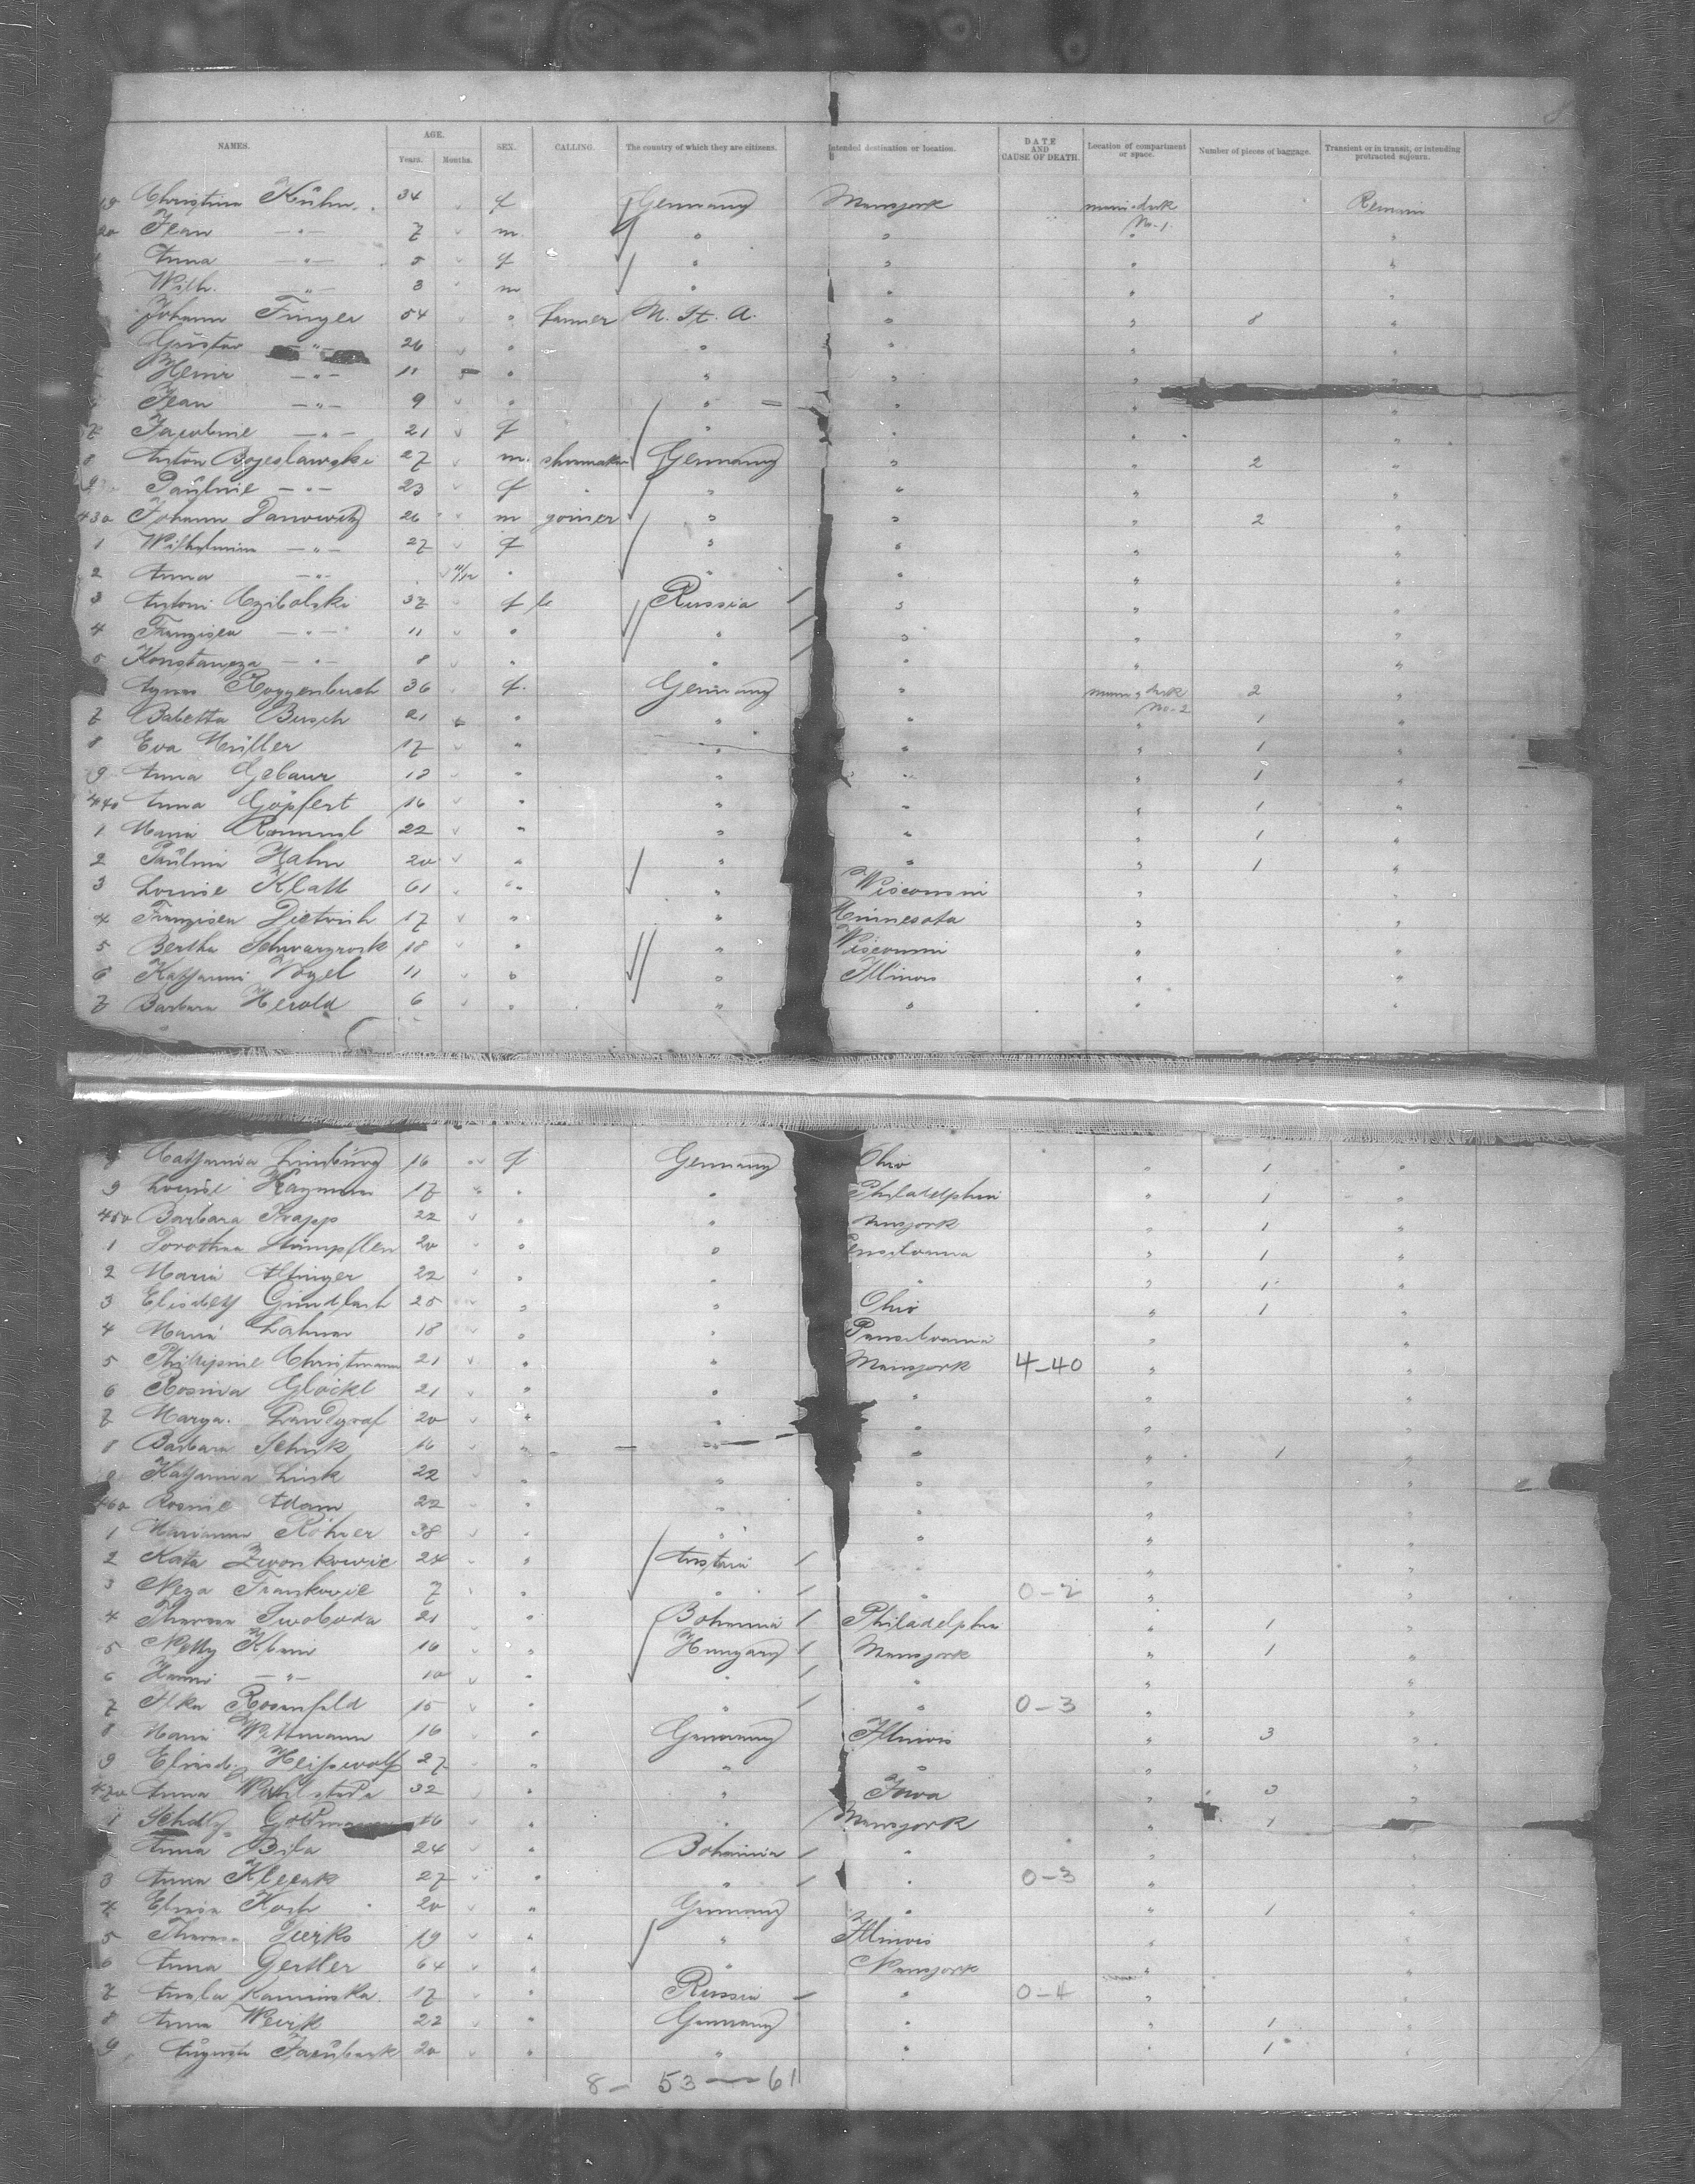 8
NAMES. AGE. Years. Months. SEX. CALLING. The country of which they are citizens. Intended destination or location. DATE AND CAUSE OF DEATH. Location of compartment or space. Number of pieces of baggage. Transient or in transit, or intending protracted sojourn.
19 Christina Kühn 34 f Germany Newyork No. 1 Remain
20 Jean —"— 7 m " " " "
Anna —"— 5 f " " " "
Wilh. —"— 3 m " " " "
Johann Finger 54 " farmer U. St. A. " " 8 "
Gustav —"— 26 " " " " "
Heinr —"— 11 5 " " " " "
Jean —"— 9 " " " " "
7 Jacobine —"— 21 f " " " "
8 Anton Bogeslawski 27 m. shoemaker Germany " " 2 "
Pauline —"— 23 f " " " "
430 Johann 26 m joiner " " " 2 "
1 Wilhelmine —"— 27 f " " " "
2 Anna —"— 11/12 " " " " "
3 Antoni 37 f Russia " " "
4 Franzisca —"— 11 " " " " "
5 Konstanza —"— 8 " " " " "
Agnes Roggenbuch 36 f. Germany " No. 2 2 "
7 Babetta Busch 21 " " " " 1 "
8 Eva Müller 17 " " " " 1 "
9 Anna Gebaur 18 " " " " 1 "
440 Anna Göpfert 16 " " " " 1 "
1 Maria 22 " " " " 1 "
2 Paulin Hahn 20 " " " " 1 "
3 Louise Klatt 61 " " Wisconsin " "
4 Franzisca Dietrich 17 " " Minnesota " "
5 Bertha Schwarzrock 18 " " Wisconsin " "
6 Katharina Vogel 11 " " Illinois " "
7 Barbara Herold 6 " " " " "
8 Catharina Limburg 16 f Germany Ohio " 1 "
9 Louise Haymann 17 " " Philadelphia " 1 "
450 Barbara Trapp 22 " " Newyork " 1 "
1 Dorothea Stümpflen 20 " " " 1 "
2 Maria Ettinger 22 " " " " 1 "
3 Elisabeth Gundlach 25 " " Ohio " 1 "
4 Maria Lahmer 18 " " Pensilvania " "
5 Phillipine Christmann 21 " " Newyork 4-40 " "
6 Rosina Glöckl 21 " " " " "
7 Marga. Landgraf 20 " " " " "
8 Barbara Schick 16 " " " " 1 "
9 Katharina Link 22 " " " " "
460 Rosine Adam 22 " " " " "
1 Marianna Röhrer 38 " " " " "
2 Kata Zwonkowic 24 " Austria " "
3 Neza Frankovic 7 " " " 0-2 " "
4 Theresa Swoboda 21 " Bohemia Philadelphia " 1 "
5 Netty Klein 16 " Hungary Newyork " 1 "
6 Hanni —"— 10 " " " " "
7 Ilka Rosenfeld 15 " " " 0-3 " "
8 Maria Wittmann 16 " Germany Illinois " 3 "
9 Elisab. Heisswolf 27 " " " " "
470 Anna 32 " " Iowa " 3 "
1 16 " " Newyork " 1 "
Anna Bila 24 " Bohemia " " "
3 Anna 27 " " " 0-3 " "
4 Elisa Koch 20 " Germany " " 1 "
5 Theresa Jerks 19 " " Illinois " "
6 Anna Gertler 64 " " Newyork " "
7 Kaminska 17 " Russia " 0-4 " "
8 Anna Weirk 22 " Germany " " 1 "
9 Auguste 20 " " " " 1 "
8 — 53 — 61